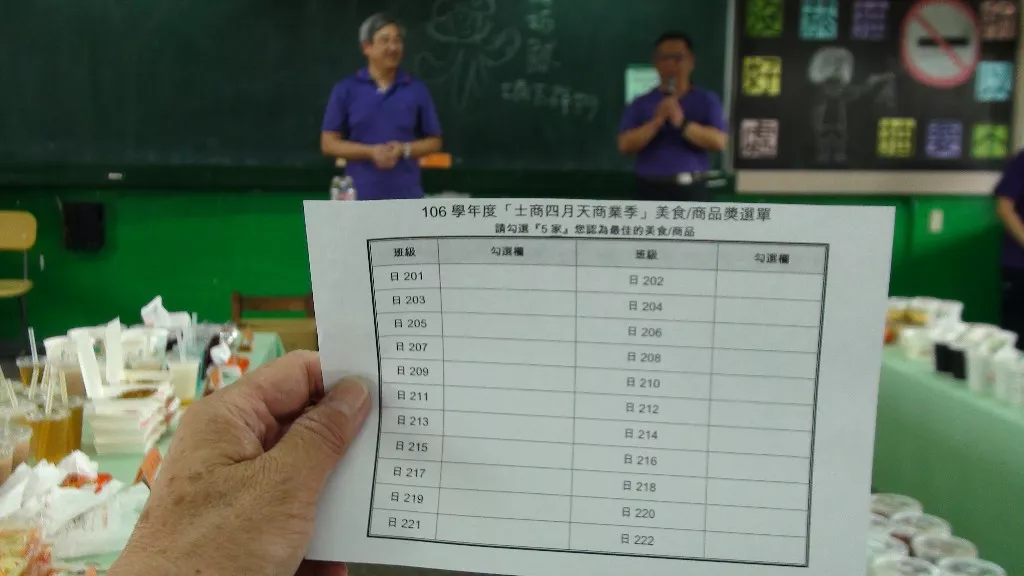 106 學年度「士商四月天商業季」美食/商品獎選單
請勾選『5 家』您認為最佳的美食/商品
班級 勾選欄 班級 勾選欄
日 201 日 202
日 203 日 204
日 205 日 206
日 207 日 208
日 209 日 210
日 211 日 212
日 213 日 214
日 215 日 216
日 217 日 218
日 219 日 220
日 221 日 222